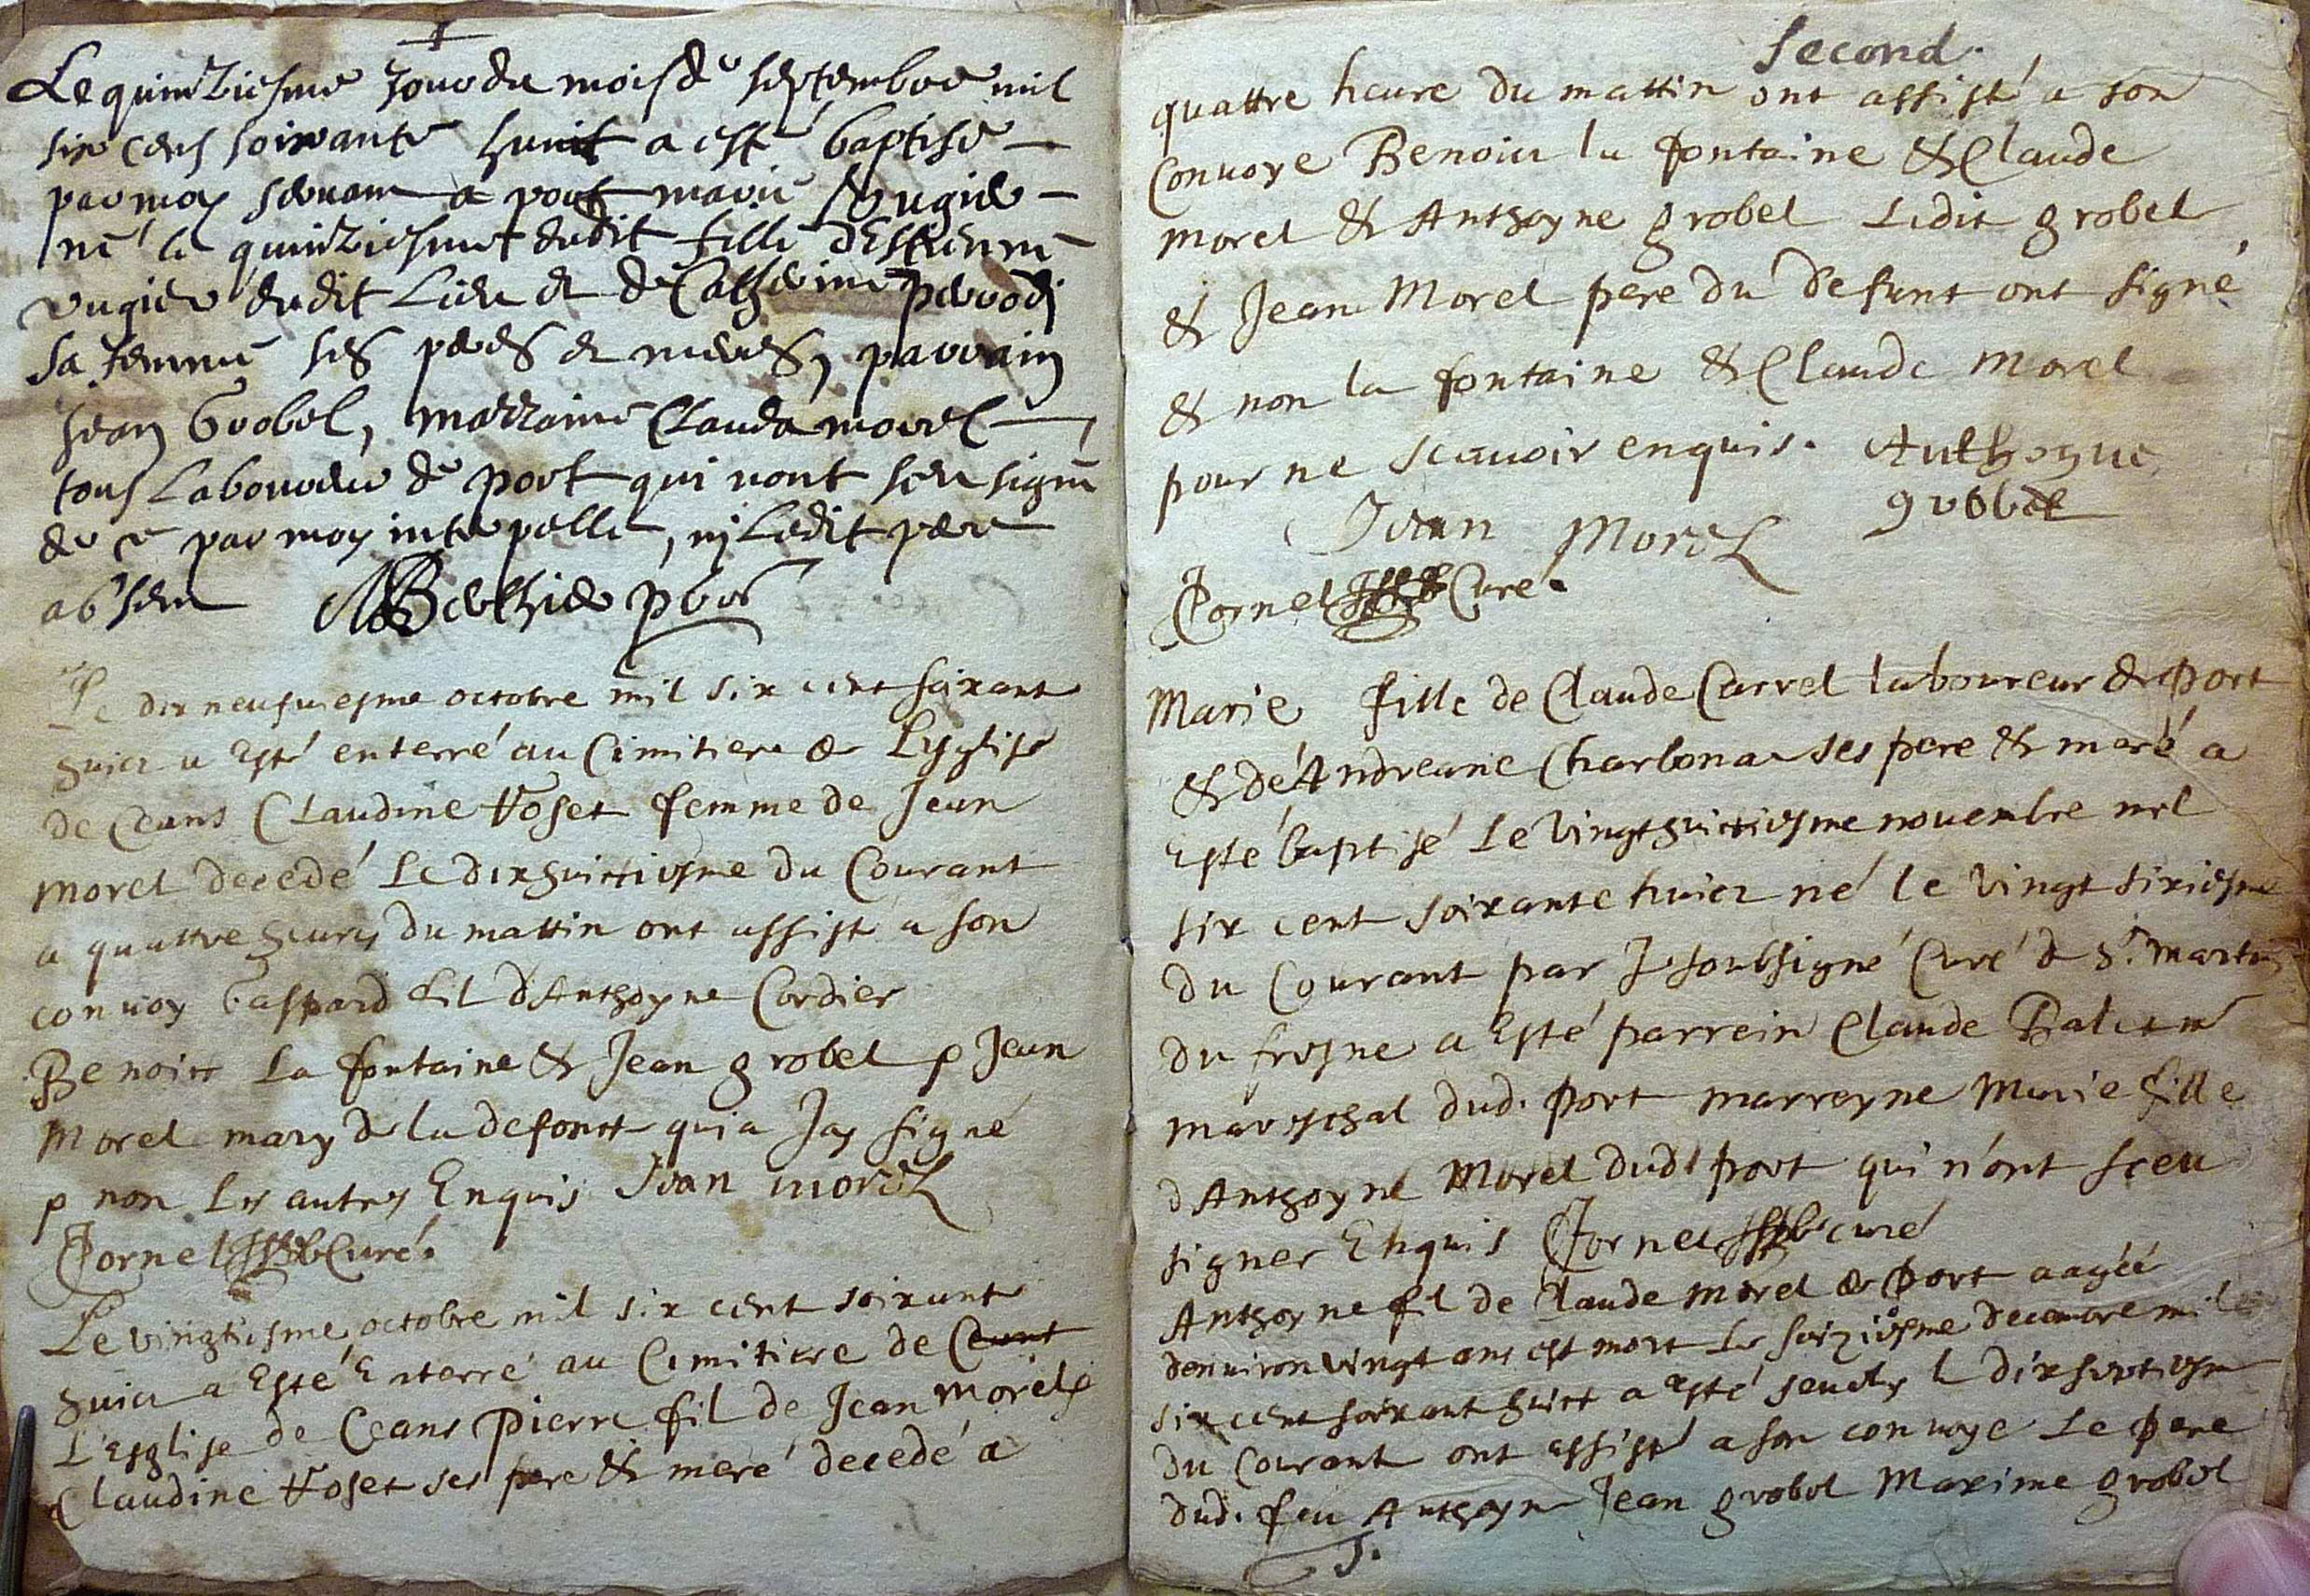 Le quinziesme jour du mois de septembre mil
six cens soixante huit a esté baptisé
par moy servant a port marie rugier
né le quinziesme dudit fille d'Estienne
rugier dudit Lieu et de Catherine
sa femme ses peres et meres, parrain
Jean Grobel, marraine Clauda morel
tous Laboureurs de port qui n'ont sceu signé
de ce par moy interpellé, ny Ledit pere
absent Berthier pbre
Le dix neufviesme octobre mil six cent soixant
huict a Esté enterré au Cimitiere de L'esglise
de Ceans Claudine Voset femme de Jean
morel decedé Le dixhuictiesme du Courant
a quattre heures du mattin ont assisté a son
convoy Gaspard fil d'Anthoyne Cordier
Benoict La fontaine & Jean grobel p Jean
Morel mary de la defonct qui a Jcy signé
p non Les autres Enquis Jean morel
Cornel Curé.
Le vingtiesme octobre mil six cent soixant
huict a Esté Enterré au Cimitiere de Ceant
L'Esglise de Ceans Pierre fil de Jean Morel &
Claudine Voset ses pere & meré decedé a
second.
quattre heure du mattin ont assisté a son
Convoye Benoict la fontaine & Claude
morel & Anthoyne grobel Ledit grobel
& Jean Morel pere du defunt ont signé
& non la fontaine & Claude morel
pour ne scauoir enquis. Anthoyne
grobel
Jean Morel
Cornel Curé.
Marie fille de Claude Carrel laboureur de Port
& dé Andreane Charbona ses pere & maré a
Esté baptisé Le vingt huictiesme novembre mil
six cent soixante huict né le vingt sixiesme
du Courant par Je soubsigné Curé de St. martin
du fresne a Esté parrein Claude
mareschal dud. Port marreyne Marie fille
d Anthoyne Morel dudt port qui n'ont sceu
signer Enquis Cornel curé
Anthoyne fil de Claude morel de Port aagéé
d'environ vingt ans est mort Le seiziesme decembre mil
six cent soixant huict a Esté sevely l dix septiesm
du Courant ont assisté a son convoye Le Pere
dud. feu Anthoyne Jean grobel Maxime grobel